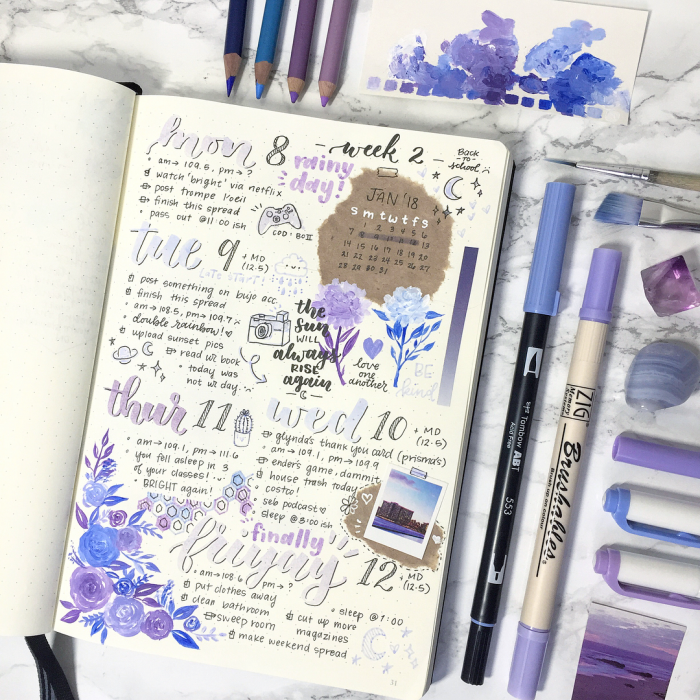 mon 8
week 2
BACK
-TO-
school
rainy
day!
am → 109.5, pm → ?
watch 'bright' via netflix
post trompe l'oeil
finish this spread
pass out @11:00 ish
COD: BOII
JAN '18
s m t w t f s
1 2 3 4 5 6
7 8 9 10 11 12 13
14 15 16 17 18 19 20
21 22 23 24 25 26 27
28 29 30 31
tue 9
+ MD
(12-5)
late start!
post something on bujo acc.
finish this spread
am → 108.5, pm → 109.7
double rainbow!
upload sunset pics
read wr book
today was
not wr day
the
sun
WILL
always
RISE
again
love
one
another
BE
kind
thur 11
am → 109.1, pm → 111.6
you fell asleep in 3
of your classes!
BRIGHT again!
wed 10
+ MD
(12-5)
glynda's thank you card (prisma's)
am → 109.1, pm → 109.9
ender's game, dammit
house trash today
costco!
se6 podcast
sleep @3:00 ish
finally
friyay 12
+ MD
(12-5)
am → 108.6, pm → ?
put clothes away
clean bathroom
sweep room
make weekend spread
sleep @1:00
cut up more
magazines
Tombow ABT
Acid Free
553
ZIG
Memory
System
Brushables